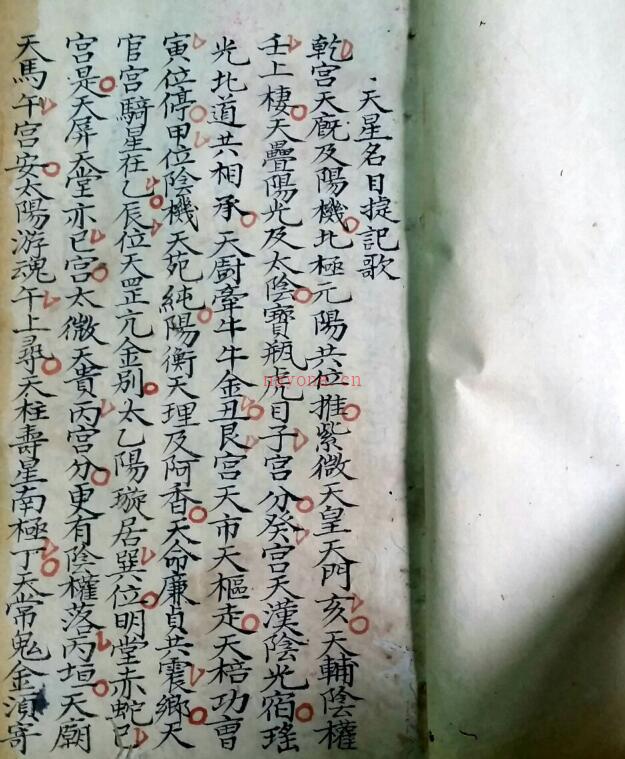 天星名目捷記歌
乾宮天廐及陽機北極元陽共位推紫微天皇天門亥天輔陰權
壬上棲天疊陽光及太陰寶瓶虎目子宮分癸宮天漢陰光宿瑤
光北道共相承天廚牽牛牛金丑艮宮天市天樞走天棓功曹
寅位停甲位陰機天苑純陽衡天理及阿香天命廉貞共震鄉天
官宮騎星在乙辰位天罡亢金別太乙陽璇居巽位明堂赤蛇巳
宮是天屏天堂亦巳宮太微天貴丙宮分更有陰權落丙垣天廟
天馬午宮安太陽游魂午上尋天柱壽星南極丁天常鬼金須寄
nayone.cn